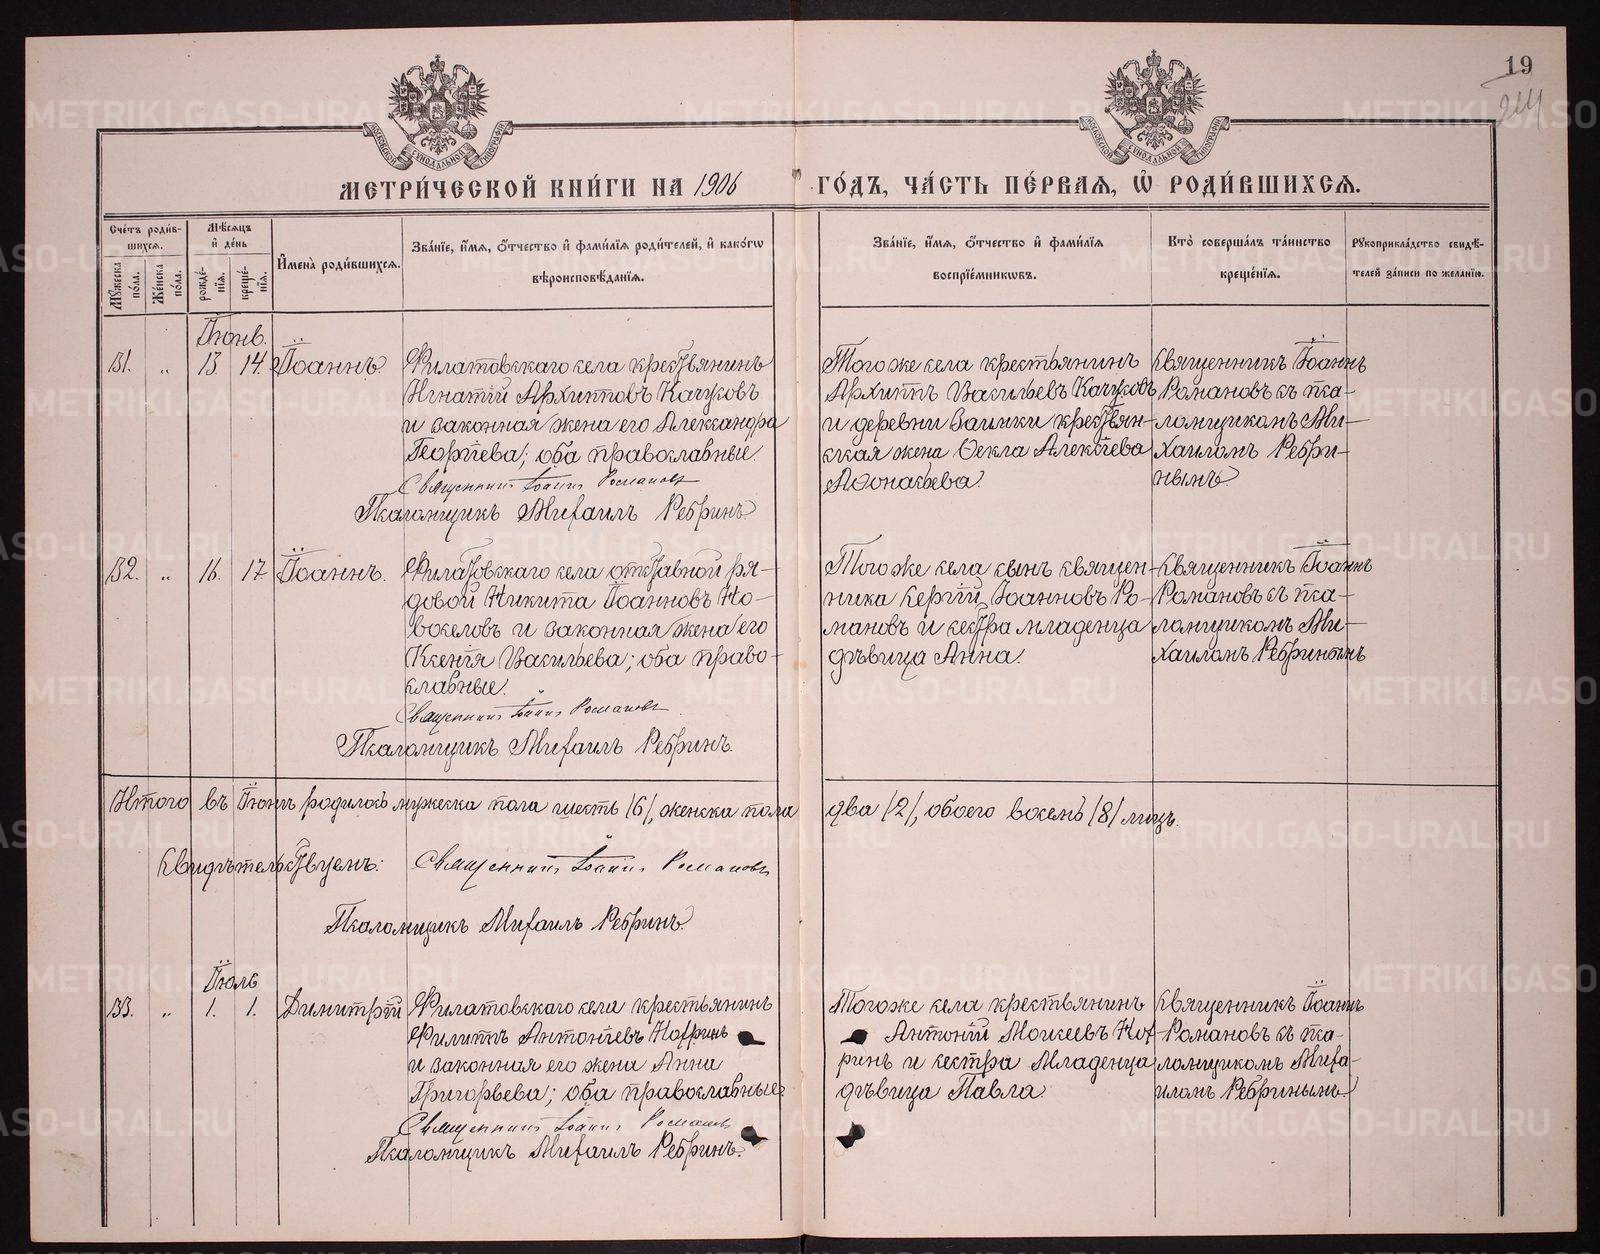 19
244
МЕТРИ́ЧЕСКОЙ КНИ́ГИ НА 1906
ГО́ДЪ, ЧА́СТЬ ПЕ́РВАѦ, Ѽ РОДИ́ВШИХСѦ.
Сче́тъ роди́в-
шихсѧ.
Мꙋ́жеска по́ла.
Же́нска по́ла.
Мѣ́сѧцъ
и҆ де́нь
рожде́-
нїѧ.
креще́-
нїѧ.
И҆мена̀ роди́вшихсѧ.
Зва́нїе, и҆́мѧ, ѻ҆́тчество и҆ фами́лїѧ роди́телей, и҆ како́гѡ
вѣроисповѣ́данїѧ.
Зва́нїе, и҆́мѧ, ѻ҆́тчество и҆ фами́лїѧ
воспрїе́мникѡвъ.
Кто̀ соверша́лъ та́инство
креще́нїѧ.
Рꙋкоприкла́дство свидѣ́-
телей за́писи по жела́нїю.
Іюнь.
31. „ 13 14. Іоаннъ.
Филатовскаго села крестьянинъ
Игнатій Архиповъ Качуковъ
и законная жена его Александра
Георгіева; оба православные.
Священникъ Іоаннъ Романовъ
Псаломщикъ Михаилъ Ребринъ
Того же села крестьянинъ
Архиппъ Васильевъ Качуковъ
и деревни Заимки крестьян-
ская жена Ѳекла Алексѣева
Аѳонасьева.
Священникъ Іоаннъ
Романовъ съ пса-
ломщикомъ Ми-
хаиломъ Ребри-
нымъ
32. „ 16. 17 Іоаннъ.
Филатовскаго села отставной ря-
довой Никита Іоанновъ Но-
воселовъ и законная жена его
Ксенія Васильева; оба право-
славные.
Священникъ Іоаннъ Романовъ
Псаломщикъ Михаилъ Ребринъ.
Того же села сынъ священ-
ника Сергій Іоанновъ Ро-
мановъ и сестра младенца
дѣвица Анна.
Священникъ Іоаннъ
Романовъ съ пса-
ломщикомъ Ми-
хаиломъ Ребринымъ
Итого въ Іюнѣ родилось мужеска пола шесть /6/, женска пола
два /2/, обоего восемь /8/ лицъ.
Свидѣтельствуемъ: Священникъ Іоаннъ Романовъ
Псаломщикъ Михаилъ Ребринъ.
Іюль
33. „ 1. 1. Димитрій
Филатовскаго села крестьянинъ
Филиппъ Антоніевъ Нохринъ
и законная его жена Анна
Григорьева; оба православные.
Священникъ Іоаннъ Романовъ
Псаломщикъ Михаилъ Ребринъ.
Того же села крестьянинъ
Антоній Моисеевъ Нох-
ринъ и сестра младенца
дѣвица Павла.
Священникъ Іоаннъ
Романовъ съ пса-
ломщикомъ Миха-
иломъ Ребринымъ.
METRIKI.GASO-URAL.RU